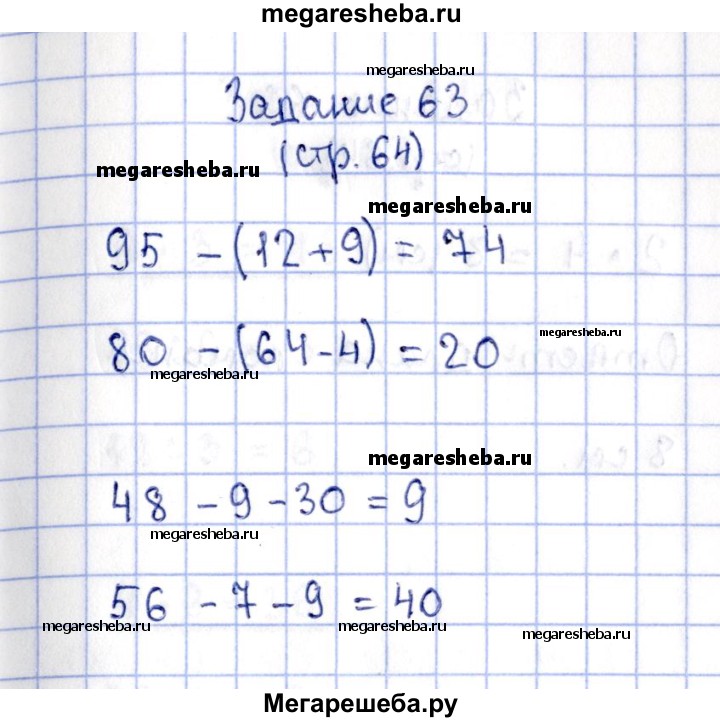 megaresheba.ru
megaresheba.ru
Задание 63
megaresheba.ru
(стр. 64)
megaresheba.ru
95 - (12 + 9) = 74
megaresheba.ru
80 - (64 - 4) = 20
megaresheba.ru
megaresheba.ru
48 - 9 - 30 = 9
megaresheba.ru
megaresheba.ru
56 - 7 - 9 = 40
megaresheba.ru
megaresheba.ru
megaresheba.ru
Мегарешеба.ру